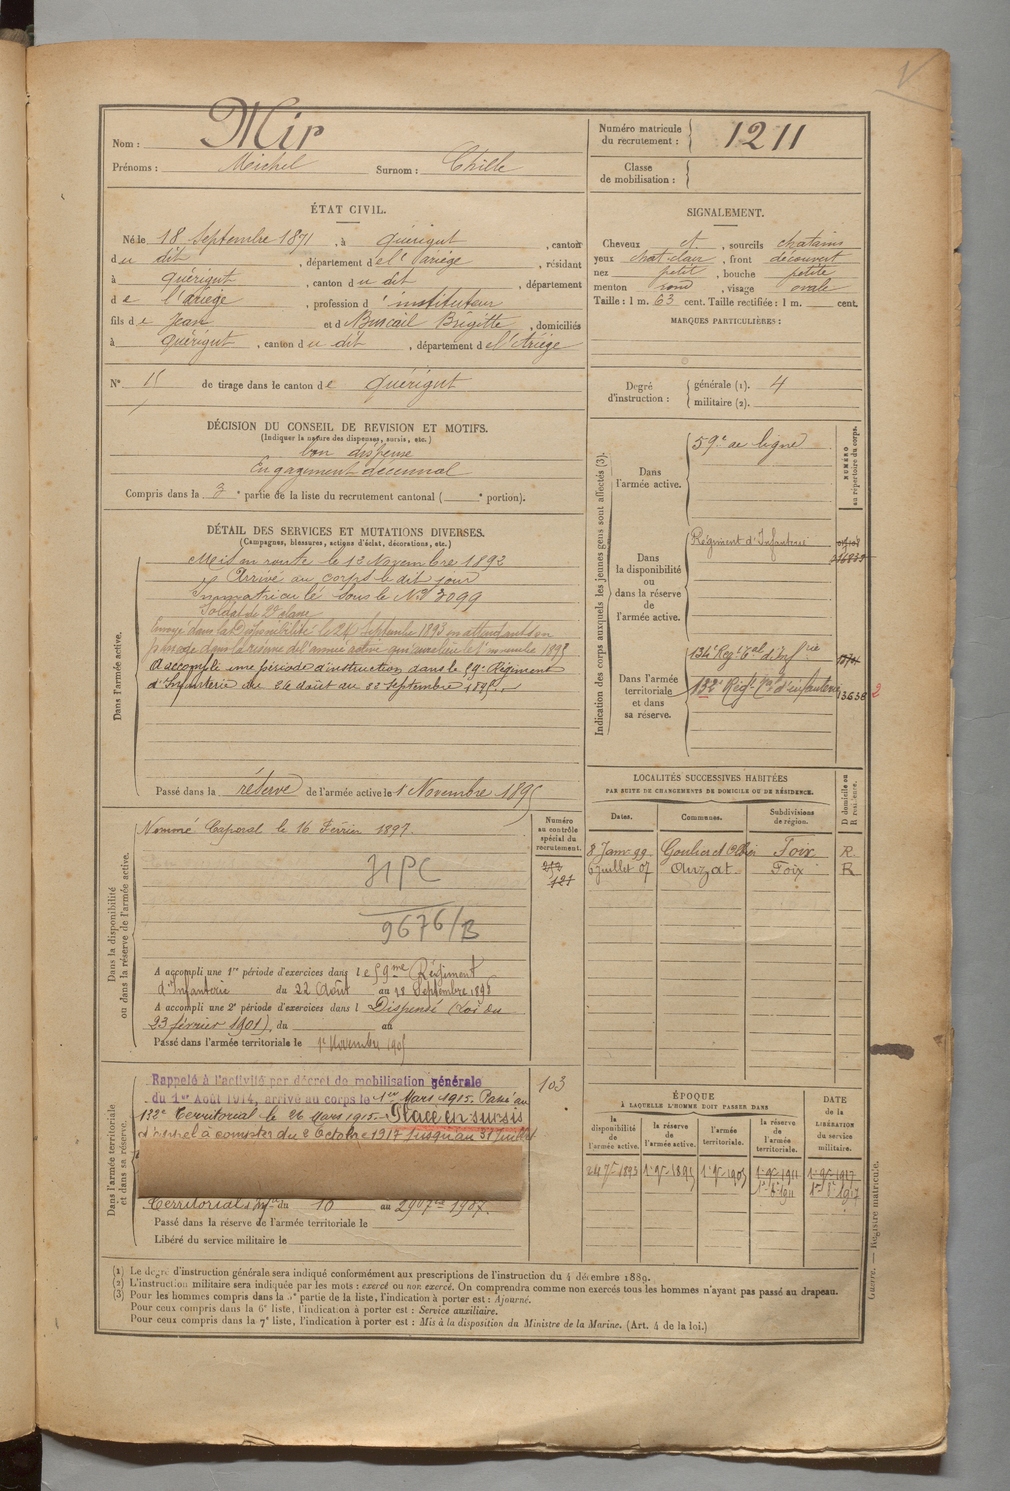 Nom : Mir
Prénoms : Michel Surnom : Chille
Numéro matricule du recrutement : 1211
Classe de mobilisation :
ÉTAT CIVIL.
Né le 18 Septembre 1871, à Quérigut, canton
du dit, département de l'Ariège, résidant
à Quérigut, canton du dit, département
de l'ariège, profession d'instituteur
fils de Jean et de Buscail Brigitte, domiciliés
à Quérigut, canton du dit, département de l'Ariège
N° 15 de tirage dans le canton de Quérigut
SIGNALEMENT.
Cheveux ct., sourcils chatains
yeux chat clair, front découvert
nez petit, bouche petite
menton rond, visage ovale
Taille : 1 m. 63 cent. Taille rectifiée : 1 m. cent.
MARQUES PARTICULIÈRES :
Degré d'instruction : générale (1). 4
militaire (2).
DÉCISION DU CONSEIL DE REVISION ET MOTIFS.
(Indiquer la nature des dispenses, sursis, etc.)
bon dispense
Engagement décennal
Compris dans la 3e partie de la liste du recrutement cantonal ( e portion).
DÉTAIL DES SERVICES ET MUTATIONS DIVERSES.
(Campagnes, blessures, actions d'éclat, décorations, etc.)
Dans l'armée active.
Mis en route le 12 Novembre 1892
Arrivé au corps le dit jour
Immatriculé sous le N° 3099
Soldat de 2e classe
Envoyé dans la disponibilité le 24 Septembre 1893 en attendant son
passage dans la réserve de l'armée active qui aura lieu le 1er novembre 1895
A accompli une période d'instruction dans le 59e Régiment
d'Infanterie du 26 août au 22 Septembre 1895.
Passé dans la réserve de l'armée active le 1 Novembre 1895
Indication des corps auxquels les jeunes gens sont affectés (3).
NUMÉRO au répertoire du corps.
Dans l'armée active.
59e de ligne
Dans la disponibilité ou dans la réserve de l'armée active.
Régiment d'Infanterie
Dans l'armée territoriale et dans sa réserve.
134e Régt tal d'Infrie
132e Régt tal d'infanterie 13638 2
Dans la disponibilité ou dans la réserve de l'armée active.
Nommé Caporal le 16 Février 1897.
9676/B
Numéro au contrôle spécial du recrutement.
121
A accompli une 1re période d'exercices dans le 59me Régiment
d'Infanterie du 22 Août au 18 Septembre 1898
A accompli une 2e période d'exercices dans l Dispensé (Loi du
23 février 1901), du au
Passé dans l'armée territoriale le 1er Novembre 1905
LOCALITÉS SUCCESSIVES HABITÉES
PAR SUITE DE CHANGEMENTS DE DOMICILE OU DE RÉSIDENCE.
Dates. Communes. Subdivisions de région. D domicile ou R résidence.
8 Janv 99 Goulier et Foix R.
6 juillet 07 Auzat Foix R
Dans l'armée territoriale et dans sa réserve.
Rappelé à l'activité par décret de mobilisation générale
du 1er Août 1914, arrivé au corps le 1er Mars 1915. Passé au
132e Territorial le 26 Mars 1915. Placé en sursis
d'appel à compter du 2 Octobre 1917 jusqu'au 31 Juillet
103
Territorial d'Infie du 10 au 1907.
Passé dans la réserve de l'armée territoriale le
Libéré du service militaire le
ÉPOQUE
À LAQUELLE L'HOMME DOIT PASSER DANS
la disponibilité de l'armée active. la réserve de l'armée active. l'armée territoriale. la réserve de l'armée territoriale. DATE de la LIBÉRATION du service militaire.
24 7bre 1893 1er 9bre 1895 1er 9bre 1905 1er 9bre 1911 1er 9bre 1917
(1) Le degré d'instruction générale sera indiqué conformément aux prescriptions de l'instruction du 4 décembre 1889.
(2) L'instruction militaire sera indiquée par les mots : exercé ou non exercé. On comprendra comme non exercés tous les hommes n'ayant pas passé au drapeau.
(3) Pour les hommes compris dans la 5e partie de la liste, l'indication à porter est : Ajourné.
Pour ceux compris dans la 6e liste, l'indication à porter est : Service auxiliaire.
Pour ceux compris dans la 7e liste, l'indication à porter est : Mis à la disposition du Ministre de la Marine. (Art. 4 de la loi.)
Guerre. — Registre matricule.